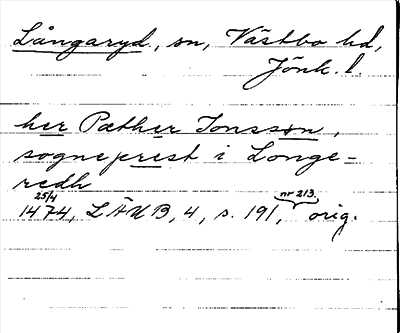 Långaryd, sn, Västbo hd,
Jönk. l.
her Pæther Jonsson,
sogneprest i Longe-
redh
25/4
1474, LÄUB, 4, s. 191, nr 213, orig.